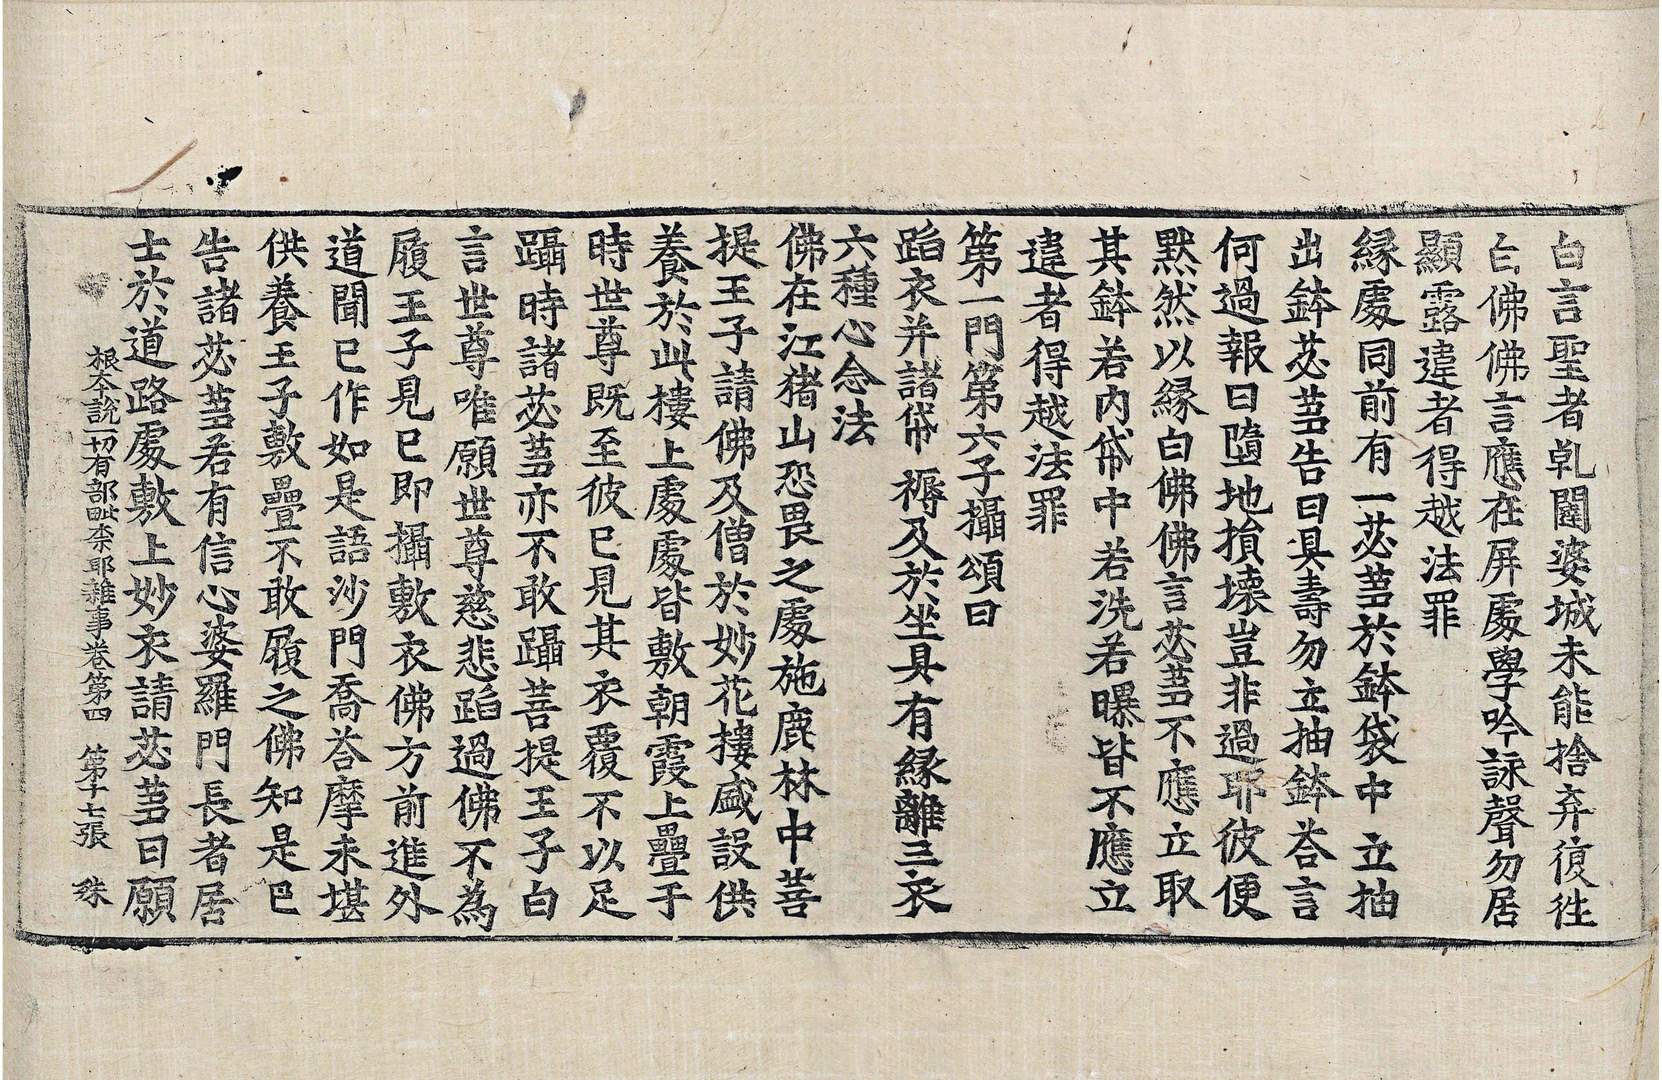 白言聖者乹闥婆城未能捨弃復往
白佛佛言應在屏處學吟詠聲勿居
顯露違者得越法罪
緣處同前有一苾芻於鉢袋中立抽
出鉢苾芻告曰具壽勿立抽鉢荅言
何過報曰墮地損壞豈非過耶彼便
默然以緣白佛佛言苾芻不應立取
其鉢若內帒中若洗若曝皆不應立
違者得越法罪
第一門第六子攝頌曰
蹈衣并諸帒 褥及於坐具有緣離三衣
六種心念法
佛在江猪山恐畏之處施鹿林中菩
提王子請佛及僧於妙花樓盛設供
養於此樓上處處皆敷朝霞上疊于
時世尊既至彼已見其衣覆不以足
躡時諸苾芻亦不敢躡菩提王子白
言世尊唯願世尊慈悲蹈過佛不為
履王子見已即攝敷衣佛方前進外
道聞已作如是語沙門喬荅摩未堪
供養王子敷疊不敢履之佛知是已
告諸苾芻若有信心婆羅門長者居
士於道路處敷上妙衣請苾芻曰願
根本說一切有部毗柰耶雜事卷第四 第十七張 殊